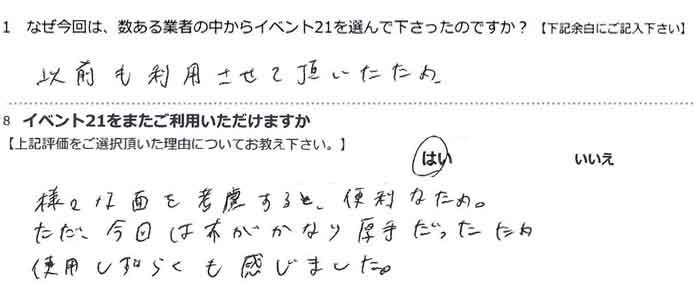 1 なぜ今回は、数ある業者の中からイベント21を選んで下さったのですか？【下記余白にご記入下さい】
以前も利用させて頂いたため
8 イベント21をまたご利用いただけますか
【上記評価をご選択頂いた理由についてお教え下さい。】
はい いいえ
様々な面を考慮すると、便利なため。
ただ、今回は布がかなり厚手だったため
使用しずらくも感じました。